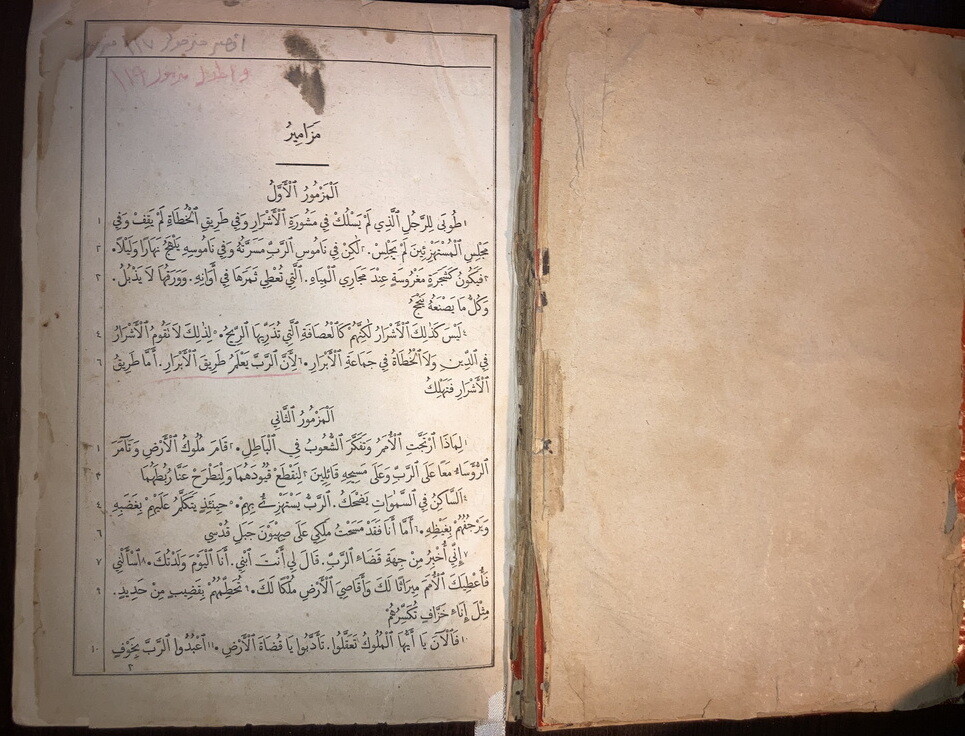 اقصر مزمور ١١٧
واطول مزمور ١١٩
مَزَامِيرُ
اَلْمَزْمُورُ ٱلْأَوَّلُ
١ ١طُوبَى لِلرَّجُلِ ٱلَّذِي لَمْ يَسْلُكْ فِي مَشُورَةِ ٱلْأَشْرَارِ وَفِي طَرِيقِ ٱلْخُطَاةِ لَمْ يَقِفْ وَفِي
٢ مَجْلِسِ ٱلْمُسْتَهْزِئِينَ لَمْ يَجْلِسْ. ٢لٰكِنْ فِي نَامُوسِ ٱلرَّبِّ مَسَرَّتُهُ وَفِي نَامُوسِهِ يَلْهَجُ نَهَارًا وَلَيْلًا.
٣ ٣فَيَكُونُ كَشَجَرَةٍ مَغْرُوسَةٍ عِنْدَ مَجَارِي ٱلْمِيَاهِ. ٱلَّتِي تُعْطِي ثَمَرَهَا فِي أَوَانِهِ. وَوَرَقُهَا لَا يَذْبُلُ.
وَكُلُّ مَا يَصْنَعُهُ يَنْجَحُ
٤ ٤لَيْسَ كَذٰلِكَ ٱلْأَشْرَارُ لٰكِنَّهُمْ كَٱلْعُصَافَةِ ٱلَّتِي تُذَرِّيهَا ٱلرِّيحُ. ٥لِذٰلِكَ لَا تَقُومُ ٱلْأَشْرَارُ
٦ فِي ٱلدِّينِ وَلَا ٱلْخُطَاةُ فِي جَمَاعَةِ ٱلْأَبْرَارِ. ٦لِأَنَّ ٱلرَّبَّ يَعْلَمُ طَرِيقَ ٱلْأَبْرَارِ. أَمَّا طَرِيقُ
ٱلْأَشْرَارِ فَتَهْلِكُ
اَلْمَزْمُورُ ٱلثَّانِي
١ ١لِمَاذَا ٱرْتَجَّتِ ٱلْأُمَمُ وَتَفَكَّرَ ٱلشُّعُوبُ فِي ٱلْبَاطِلِ. ٢قَامَ مُلُوكُ ٱلْأَرْضِ وَتَآمَرَ
٣ ٱلرُّؤَسَاءُ مَعًا عَلَى ٱلرَّبِّ وَعَلَى مَسِيحِهِ قَائِلِينَ ٣لِنَقْطَعْ قُيُودَهُمَا وَلْنَطْرَحْ عَنَّا رُبُطَهُمَا
٤ ٤اَلسَّاكِنُ فِي ٱلسَّمٰوَاتِ يَضْحَكُ. ٱلرَّبُّ يَسْتَهْزِئُ بِهِمْ. ٥حِينَئِذٍ يَتَكَلَّمُ عَلَيْهِمْ بِغَضَبِهِ
٦ وَيَرْجُفُهُمْ بِغَيْظِهِ. ٦أَمَّا أَنَا فَقَدْ مَسَحْتُ مَلِكِي عَلَى صِهْيَوْنَ جَبَلِ قُدْسِي
٧ ٧إِنِّي أُخْبِرُ مِنْ جِهَةِ قَضَاءِ ٱلرَّبِّ. قَالَ لِي أَنْتَ ٱبْنِي. أَنَا ٱلْيَوْمَ وَلَدْتُكَ. ٨ٱسْأَلْنِي
٩ فَأُعْطِيَكَ ٱلْأُمَمَ مِيرَاثًا لَكَ وَأَقَاصِيَ ٱلْأَرْضِ مُلْكًا لَكَ. ٩تُحَطِّمُهُمْ بِقَضِيبٍ مِنْ حَدِيدٍ.
مِثْلَ إِنَاءِ خَزَّافٍ تُكَسِّرُهُمْ
١٠ ١٠فَٱلْآنَ يَا أَيُّهَا ٱلْمُلُوكُ تَعَقَّلُوا. تَأَدَّبُوا يَا قُضَاةَ ٱلْأَرْضِ. ١١ٱعْبُدُوا ٱلرَّبَّ بِخَوْفٍ
٢